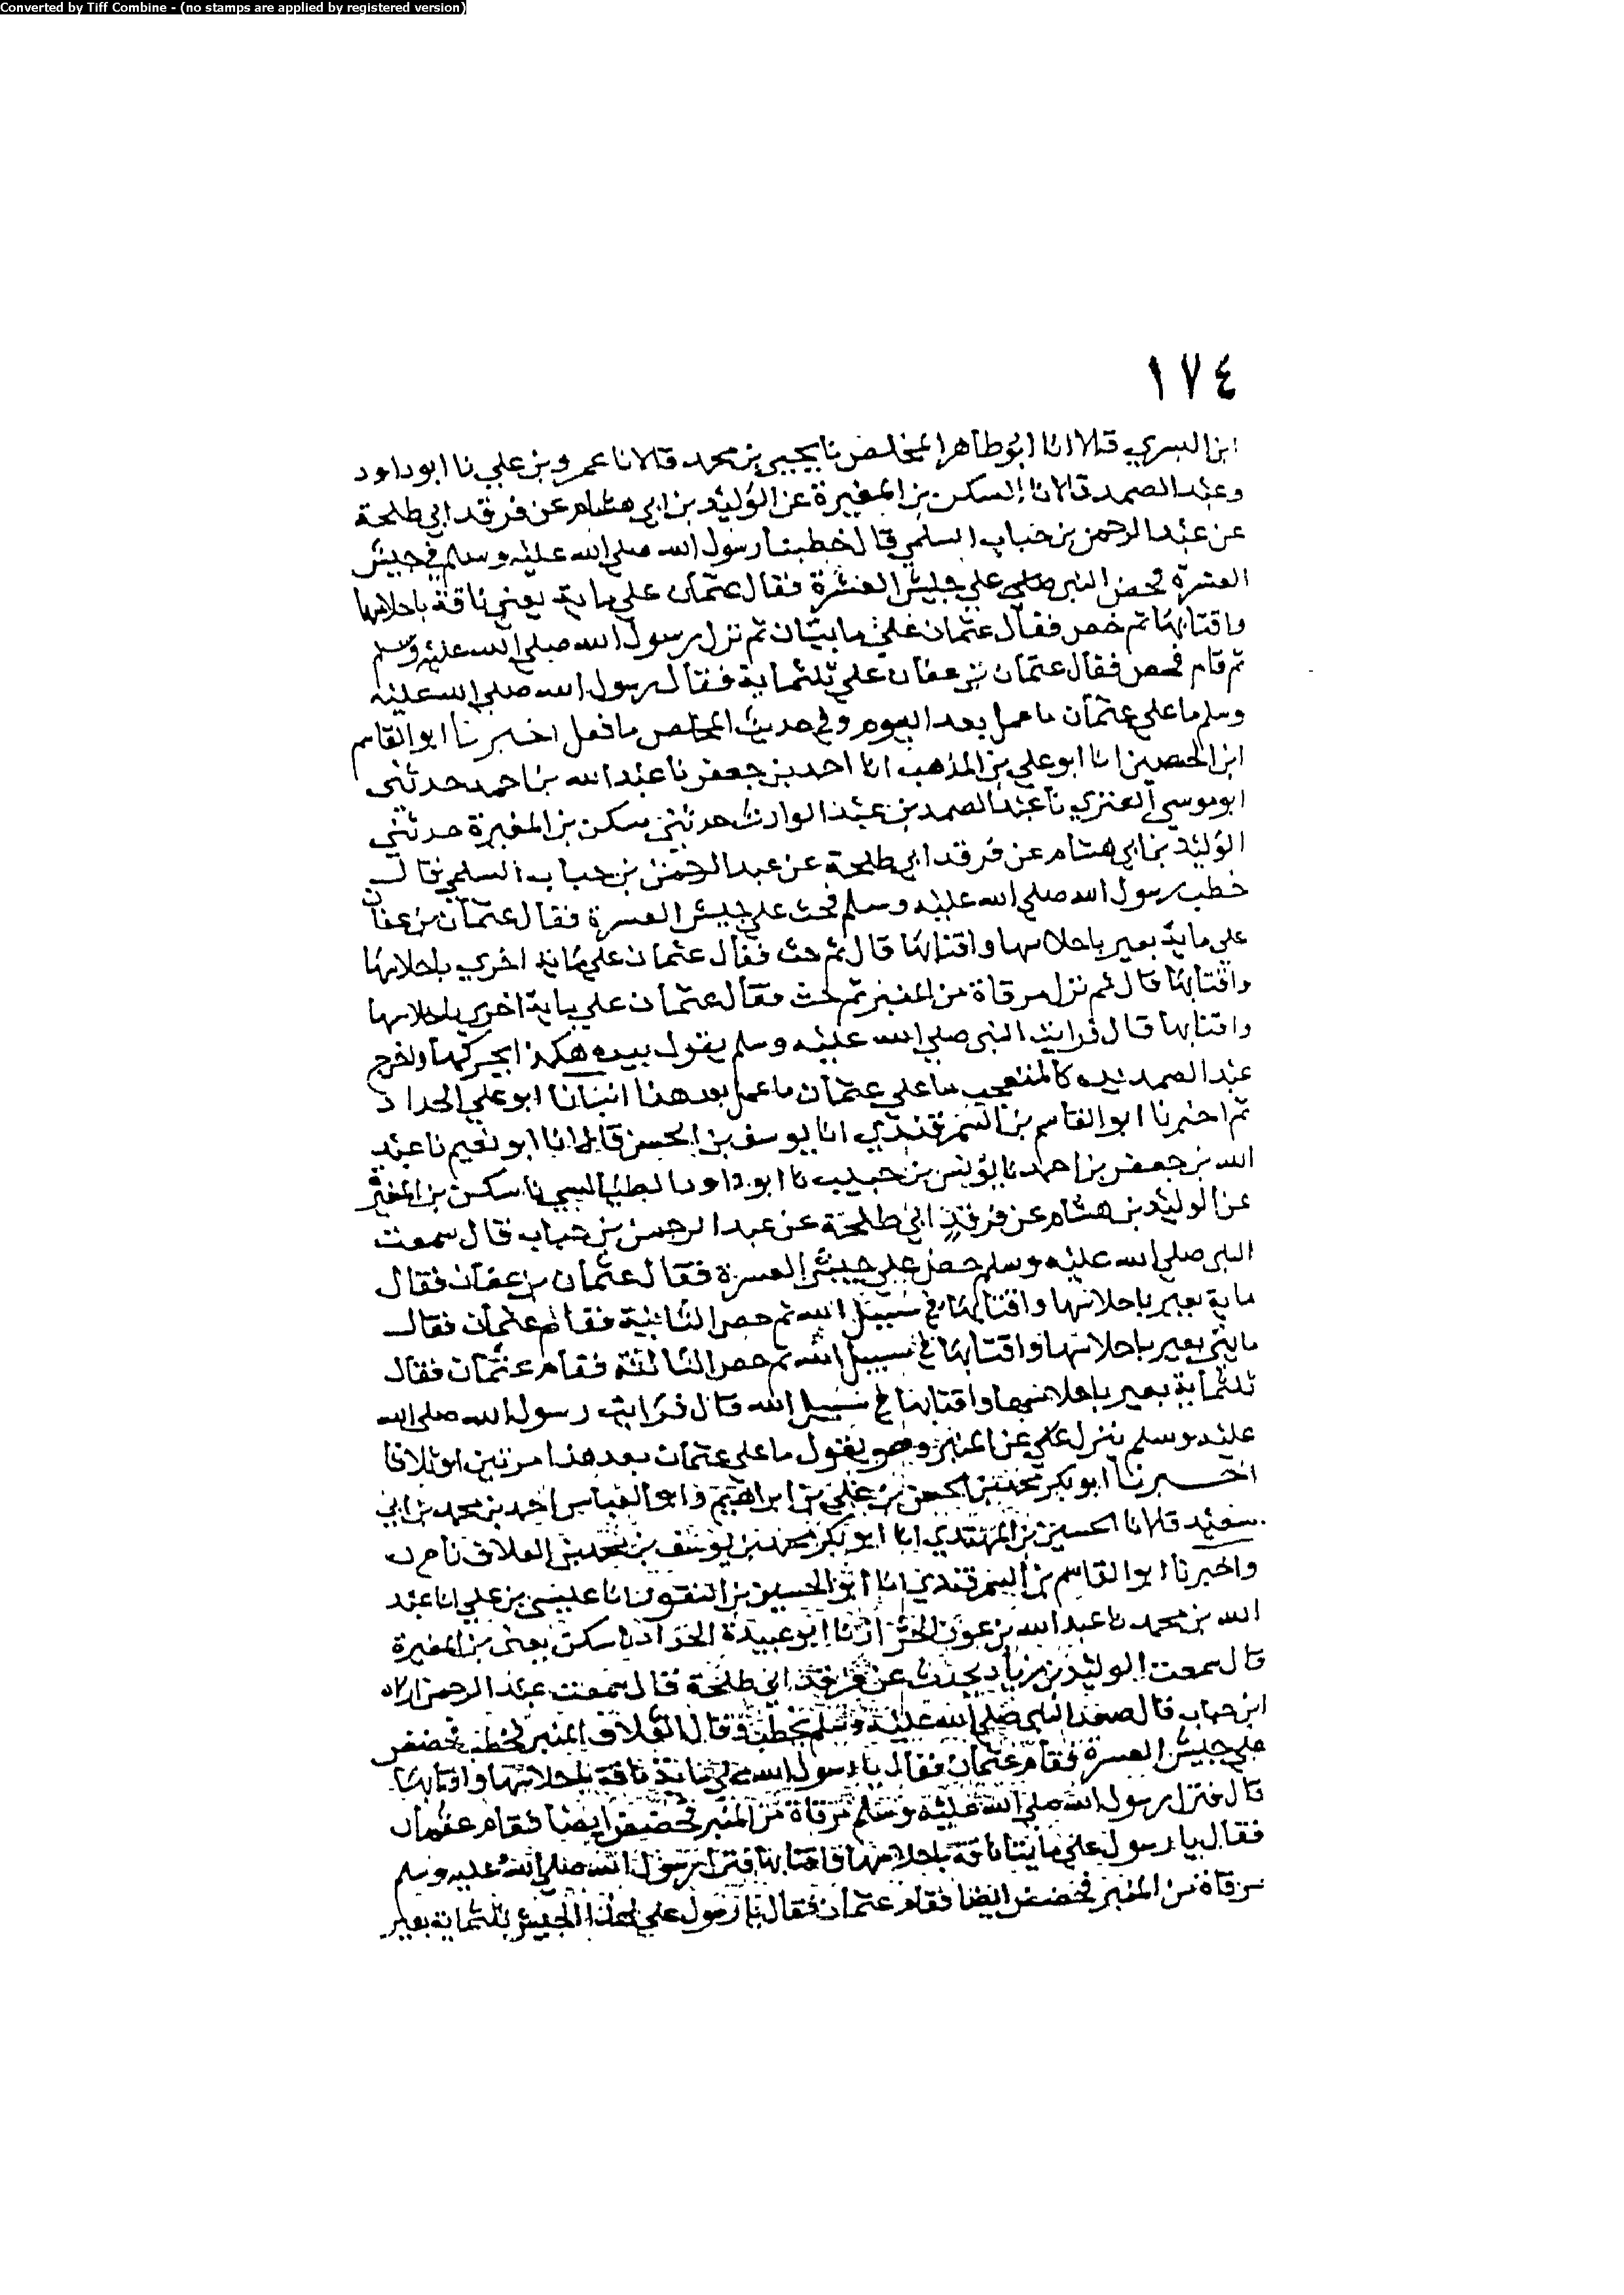 Converted by Tiff Combine - (no stamps are applied by registered version)
١٧٤
ابن البسري قالا انا ابو طاهر المخلص نا يحيى بن محمد قالا نا عمرو بن علي نا ابو داود
وعبد الصمد قالا نا السكن بن المغيرة عن الوليد بن ابي هشام عن فرقد ابي طلحة
عن عبد الرحمن بن خباب السلمي قال خطبنا رسول الله صلى الله عليه وسلم في جيش
العسرة فحض النبي صلى علي جيش العسرة فقال عثمان علي ماية يعني ناقة باحلاسها
واقتابها ثم حض فقال عثمان علي مايتان ثم نزل رسول الله صلى الله عليه وسلم
ثم قام فحض فقال عثمان بن عفان علي ثلثماية فقال رسول الله صلى الله عليه
وسلم ما علي عثمان ما عمل بعد اليوم وفي حديث المخلص ما فعل اخبرنا ابو القاسم
ابن الحصين انا ابو علي بن المذهب انا احمد بن جعفر نا عبد الله بن احمد حدثني
ابو موسي العنزي نا عبد الصمد بن عبد الوارث حدثني سكن بن المغيرة حدثني
الوليد بن ابي هشام عن فرقد ابي طلحة عن عبد الرحمن بن خباب السلمي قال
خطب رسول الله صلى الله عليه وسلم فحث علي جيش العسرة فقال عثمان بن عفان
علي ماية بعير باحلاسها واقتابها قال ثم حث فقال عثمان علي ماية اخري باحلاسها
واقتابها قال ثم نزل مرقاة من المنبر ثم حث فقال عثمان علي ماية اخري باحلاسها
واقتابها قال فرايت النبي صلى الله عليه وسلم يقول بيده هكذا يحركها واخرج
عبد الصمد يده كالمتعجب ما علي عثمان ما عمل بعد هذا انبانا ابو علي الحداد
ثم اخبرنا ابو القاسم بن السمرقندي انا يوسف بن الحسن قالا انا ابو نعيم نا عبد
الله بن جعفر بن احمد نا يونس بن حبيب نا ابو داود الطيالسي نا سكن بن المغيرة
عن الوليد بن هشام عن فرقد ابي طلحة عن عبد الرحمن بن خباب قال سمعت
النبي صلى الله عليه وسلم حض علي جيش العسرة فقال عثمان بن عفان فقال
ماية بعير باحلاسها واقتابها في سبيل الله ثم حض الثانية فقام عثمان فقال
مايتي بعير باحلاسها واقتابها في سبيل الله ثم حض الثالثة فقام عثمان فقال
ثلثماية بعير باحلاسها واقتابها في سبيل الله قال فرايت رسول الله صلى الله
عليه وسلم ينزل علي عن المنبر وهو يقول ما علي عثمان بعد هذا مرتين او ثلاثا
اخبرنا ابو بكر محمد بن الحسن بن علي بن ابراهيم وابو العباس احمد بن محمد بن ابي
سعيد قالا نا الحسين بن المهتدي انا ابو بكر محمد بن يوسف بن محمد بن العلاف نا
واخبرنا ابو القاسم بن السمرقندي انا ابو الحسين بن النقور نا عيسى بن علي انا عبد
الله بن محمد نا عبد الله بن عون الخراز نا ابو عبيدة الحداد نا سكن يعني بن المغيرة
قال سمعت الوليد بن زياد يحدث عن فرقد ابي طلحة قال سمعت عبد الرحمن
ابن خباب قال صعد النبي صلى الله عليه وسلم يخطب وقال العلاف المنبر فخطب فحضض
علي جيش العسرة فقام عثمان فقال يا رسول الله علي ماية ناقة باحلاسها واقتابها
قال فنزل رسول الله صلى الله عليه وسلم مرقاة من المنبر فحضض ايضا فقام عثمان
فقال يا رسول علي مايتا ناقة باحلاسها واقتابها فنزل رسول الله صلى الله عليه وسلم
مرقاة من المنبر فحضض ايضا فقام عثمان فقال يا رسول علي لهذا الجيش ثلثماية بعير